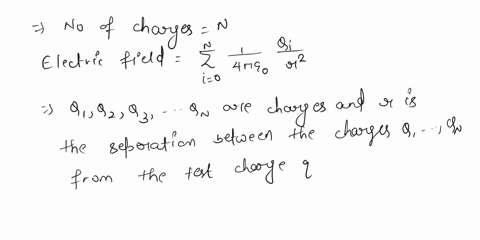 ⇒ No of charges = N
Electric field = N∑i=0 1/4πε0 Qi/r²
⇒ Q1, Q2, Q3, ... QN are charges and r is
the seperation between the charges Q1 ..., QN
from the test charge q